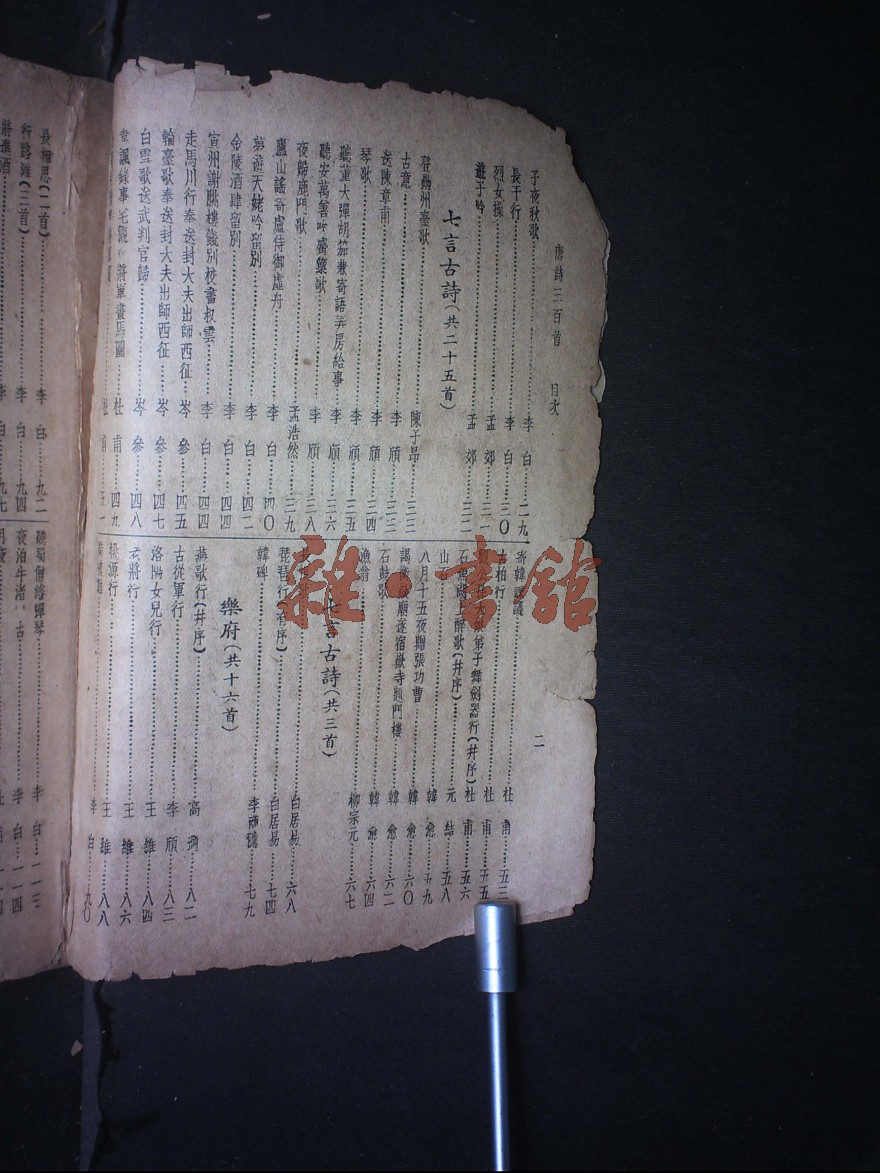 唐詩三百首 目次 二
子夜秋歌 李白 二九
長干行 李白 三〇
烈女操 孟郊 三一
遊子吟 孟郊 三二
七言古詩(共二十五首)
登幽州臺歌 陳子昂 三三
古意 李頎 三三
送陳章甫 李頎 三四
琴歌 李頎 三五
聽董大彈胡笳兼寄語弄房給事 李頎 三六
聽安萬善吹觱篥歌 李頎 三八
夜歸鹿門歌 孟浩然 三九
廬山謠寄盧侍御虛舟 李白 四〇
夢遊天姥吟留別 李白 四二
金陵酒肆留別 李白 四四
宣州謝朓樓餞別校書叔雲 李白 四四
走馬川行奉送封大夫出師西征 岑參 四五
輪臺歌奉送封大夫出師西征 岑參 四七
白雪歌送武判官歸 岑參 四八
韋諷錄事宅觀 將軍畫馬圖 杜甫 四九
杜甫 五一
寄韓諫議 杜甫 五三
古柏行 杜甫 五五
弟子舞劍器行(并序) 杜甫 五六
石 上醉歌(并序) 元結 五八
山石 韓愈 五九
八月十五夜贈張功曹 韓愈 六〇
謁衡 廟遂宿嶽寺題門樓 韓愈 六二
石鼓歌 韓愈 六四
漁翁 柳宗元 六七
七言古詩(共三首)
白居易 六八
琵琶行(有序) 白居易 七四
韓碑 李商隱 七九
樂府(共十六首)
燕歌行(并序) 高適 八二
古從軍行 李頎 八三
洛陽女兒行 王維 八四
老將行 王維 八六
桃源行 王維 八八
李白 九〇
長相思(二首) 李白 九二
行路難(三首) 李白 九四
將進酒 李白 九七
聽蜀僧濬彈琴 李白 一一三
夜泊牛渚 古 李白 一一四
雜·書館